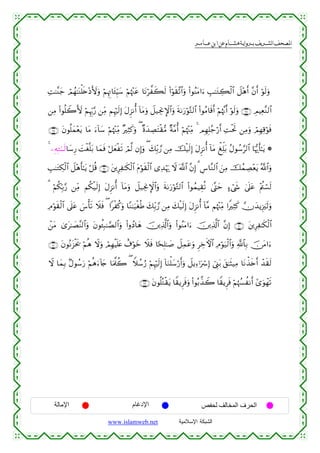 المصحف الشريف برواية هشام عن ابن عامر
وَلَوْ أَنَّ أَهْلَ ٱلْكِتَٰبِ ءَامَنُوا۟ وَٱتَّقَوْا۟ لَكَفَّرْنَا عَنْهُمْ سَيِّـَٔاتِهِمْ وَلَأَدْخَلْنَٰهُمْ جَنَّٰتِ
ٱلنَّعِيمِ ۝ وَلَوْ أَنَّهُمْ أَقَامُوا۟ ٱلتَّوْرَىٰةَ وَٱلْإِنجِيلَ وَمَآ أُنزِلَ إِلَيْهِم مِّن رَّبِّهِمْ لَأَكَلُوا۟ مِن
فَوْقِهِمْ وَمِن تَحْتِ أَرْجُلِهِم ۚ مِّنْهُمْ أُمَّةٌ مُّقْتَصِدَةٌ ۖ وَكَثِيرٌ مِّنْهُمْ سَآءَ مَا يَعْمَلُونَ ۝
* يَٰٓأَيُّهَا ٱلرَّسُولُ بَلِّغْ مَآ أُنزِلَ إِلَيْكَ مِن رَّبِّكَ ۖ وَإِن لَّمْ تَفْعَلْ فَمَا بَلَّغْتَ رِسَالَٰتِهِۦ ۚ
وَٱللَّهُ يَعْصِمُكَ مِنَ ٱلنَّاسِ ۗ إِنَّ ٱللَّهَ لَا يَهْدِى ٱلْقَوْمَ ٱلْكَٰفِرِينَ ۝ قُلْ يَٰٓأَهْلَ ٱلْكِتَٰبِ
لَسْتُمْ عَلَىٰ شَىْءٍ حَتَّىٰ تُقِيمُوا۟ ٱلتَّوْرَىٰةَ وَٱلْإِنجِيلَ وَمَآ أُنزِلَ إِلَيْكُم مِّن رَّبِّكُمْ ۗ
وَلَيَزِيدَنَّ كَثِيرًا مِّنْهُم مَّآ أُنزِلَ إِلَيْكَ مِن رَّبِّكَ طُغْيَٰنًا وَكُفْرًا ۖ فَلَا تَأْسَ عَلَى ٱلْقَوْمِ
ٱلْكَٰفِرِينَ ۝ إِنَّ ٱلَّذِينَ ءَامَنُوا۟ وَٱلَّذِينَ هَادُوا۟ وَٱلصَّٰبِـُٔونَ وَٱلنَّصَٰرَىٰ مَنْ
ءَامَنَ بِٱللَّهِ وَٱلْيَوْمِ ٱلْءَاخِرِ وَعَمِلَ صَٰلِحًا فَلَا خَوْفٌ عَلَيْهِمْ وَلَا هُمْ يَحْزَنُونَ ۝
لَقَدْ أَخَذْنَا مِيثَٰقَ بَنِىٓ إِسْرَٰٓءِيلَ وَأَرْسَلْنَآ إِلَيْهِمْ رُسُلًا ۖ كُلَّمَا جَآءَهُمْ رَسُولٌۢ بِمَا لَا
تَهْوَىٰٓ أَنفُسُهُمْ فَرِيقًا كَذَّبُوا۟ وَفَرِيقًا يَقْتُلُونَ ۝
الحرف المخالف لحفص الإدغام الإمالة
الشبكة الإسلامية www.islamweb.net